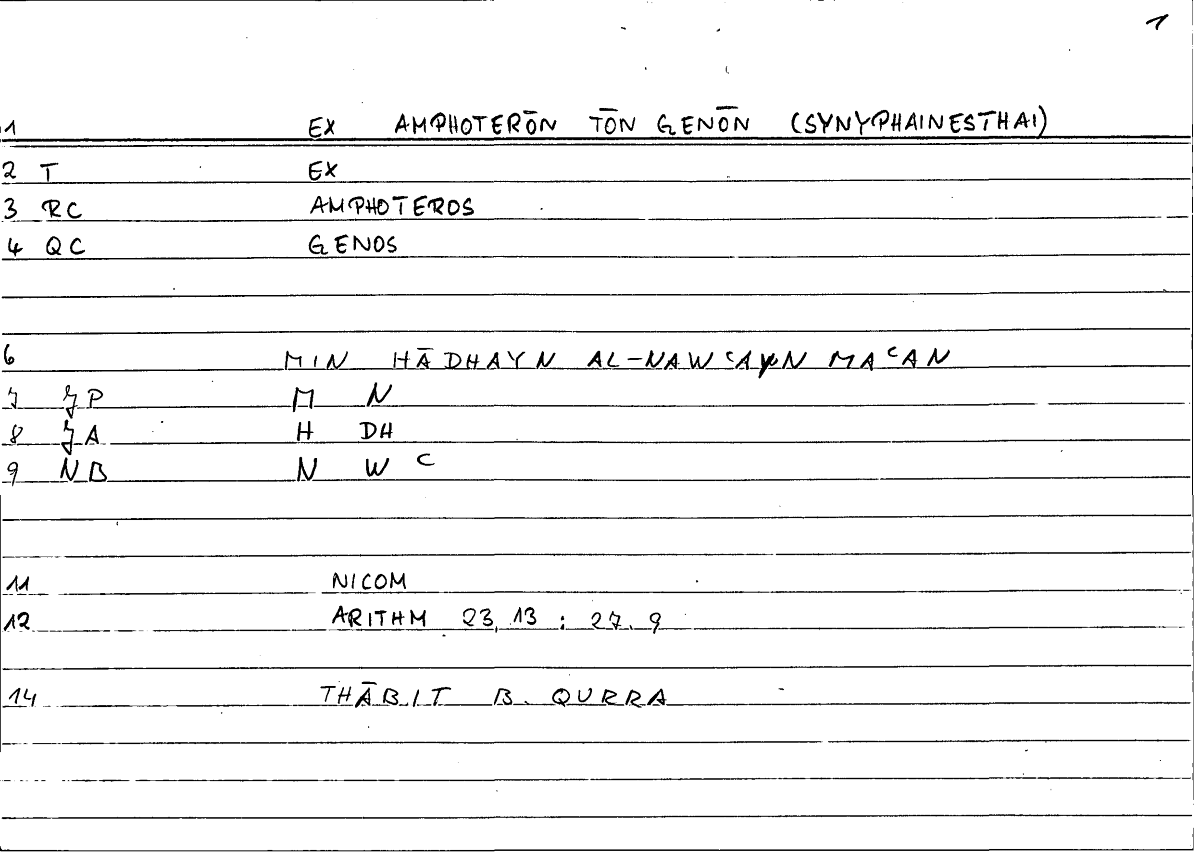 1
1 EX AMPHOTERŌN TŌN GENŌN (SYNYPHAINESTHAI)
2 T EX
3 RC AMPHOTEROS
4 QC GENOS
6 MIN HĀDHAYN AL-NAWʿAYN MAʿAN
7 JP M N
8 JA H DH
9 NB N W ʿ
11 NICOM
12 ARITHM 23,13 : 27.9
14 THĀBIT B. QURRA